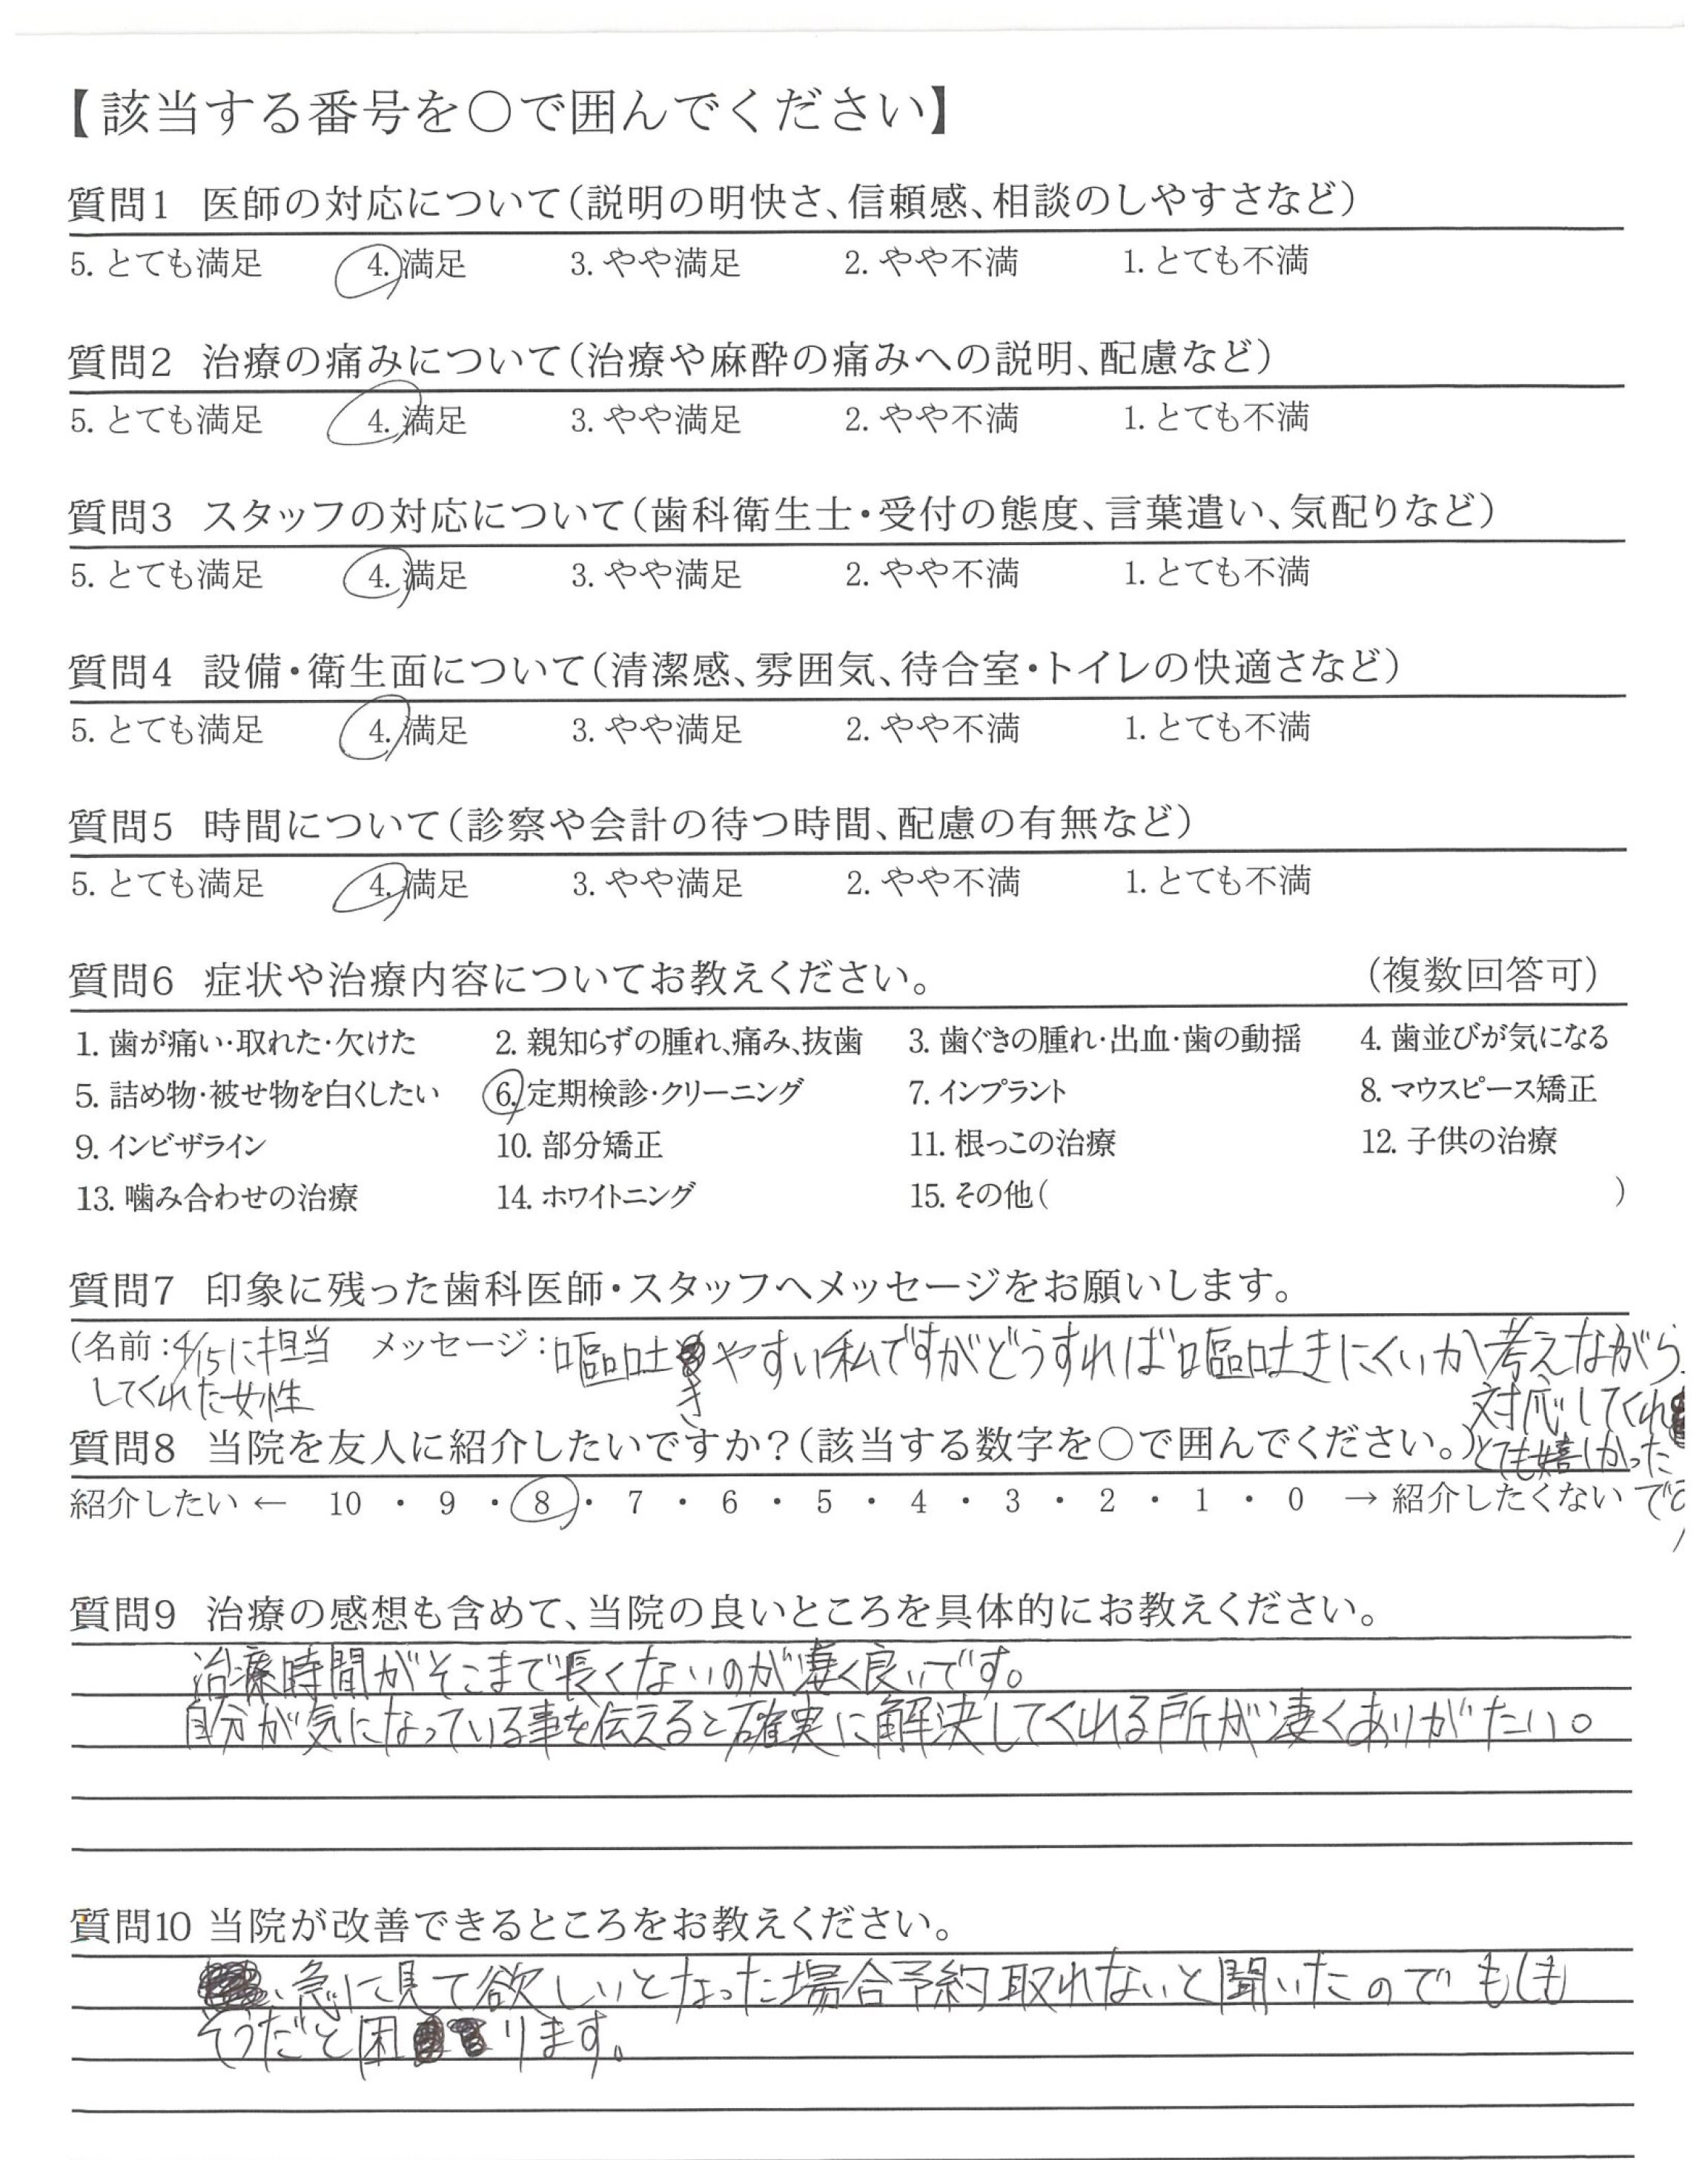 【該当する番号を○で囲んでください】
質問1 医師の対応について(説明の明快さ、信頼感、相談のしやすさなど)
5. とても満足 4. 満足 3. やや満足 2. やや不満 1. とても不満
質問2 治療の痛みについて(治療や麻酔の痛みへの説明、配慮など)
5. とても満足 4. 満足 3. やや満足 2. やや不満 1. とても不満
質問3 スタッフの対応について(歯科衛生士・受付の態度、言葉遣い、気配りなど)
5. とても満足 4. 満足 3. やや満足 2. やや不満 1. とても不満
質問4 設備・衛生面について(清潔感、雰囲気、待合室・トイレの快適さなど)
5. とても満足 4. 満足 3. やや満足 2. やや不満 1. とても不満
質問5 時間について(診察や会計の待つ時間、配慮の有無など)
5. とても満足 4. 満足 3. やや満足 2. やや不満 1. とても不満
質問6 症状や治療内容についてお教えください。 (複数回答可)
1. 歯が痛い・取れた・欠けた 2. 親知らずの腫れ、痛み、抜歯 3. 歯ぐきの腫れ・出血・歯の動揺 4. 歯並びが気になる
5. 詰め物・被せ物を白くしたい 6. 定期検診・クリーニング 7. インプラント 8. マウスピース矯正
9. インビザライン 10. 部分矯正 11. 根っこの治療 12. 子供の治療
13. 噛み合わせの治療 14. ホワイトニング 15. その他( )
質問7 印象に残った歯科医師・スタッフへメッセージをお願いします。
(名前:4/15に担当 メッセージ:嘔吐きやすい私ですがどうすれば嘔吐きにくいか考えながら
してくれた女性 対応してくれ
質問8 当院を友人に紹介したいですか?(該当する数字を○で囲んでください。) とても嬉しかった
紹介したい ← 10 ・ 9 ・ 8 ・ 7 ・ 6 ・ 5 ・ 4 ・ 3 ・ 2 ・ 1 ・ 0 → 紹介したくない で
質問9 治療の感想も含めて、当院の良いところを具体的にお教えください。
治療時間がそこまで長くないのが凄く良いです。
自分が気になっている事を伝えると確実に解決してくれる所が凄くありがたい。
質問10 当院が改善できるところをお教えください。
急に見て欲しいとなった場合予約取れないと聞いたのでもしも
そうだと困ります。